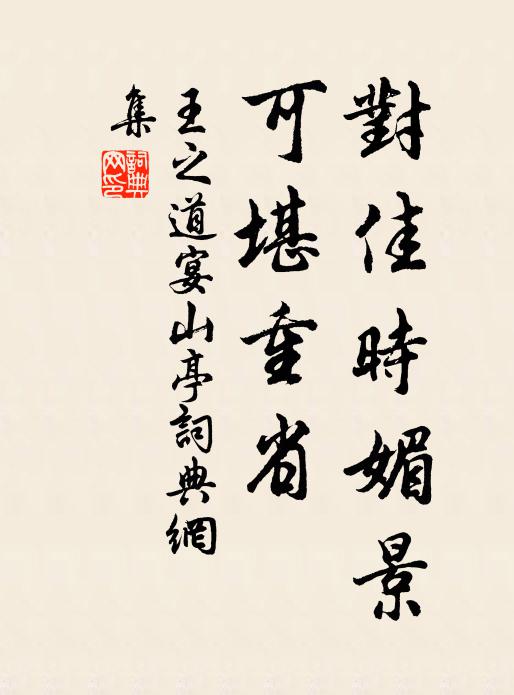 對佳時媚景
可堪重省
王之道宴山亭詞典網
集
詞典網印